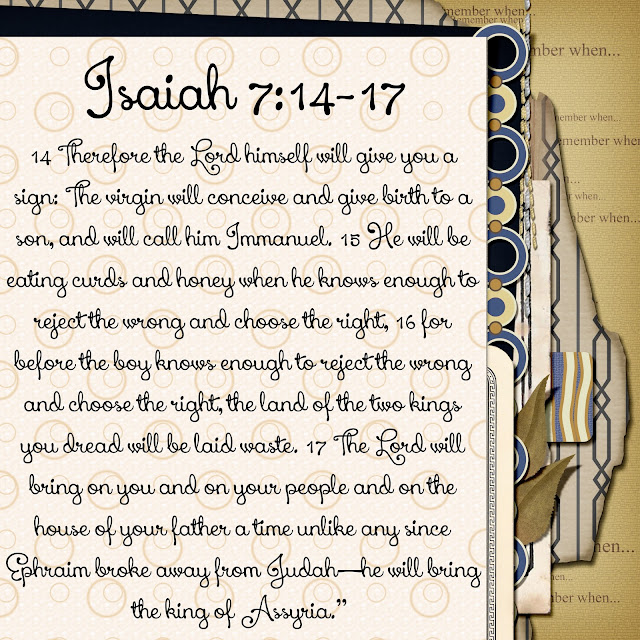 Isaiah 7:14-17
14 Therefore the Lord himself will give you a
sign: The virgin will conceive and give birth to a
son, and will call him Immanuel. 15 He will be
eating curds and honey when he knows enough to
reject the wrong and choose the right, 16 for
before the boy knows enough to reject the wrong
and choose the right, the land of the two kings
you dread will be laid waste. 17 The Lord will
bring on you and on your people and on the
house of your father a time unlike any since
Ephraim broke away from Judah—he will bring
the king of Assyria.”
member when...
member when...
mber when...
ember when...
member when...
when...
mber when...
hen...
mber when...